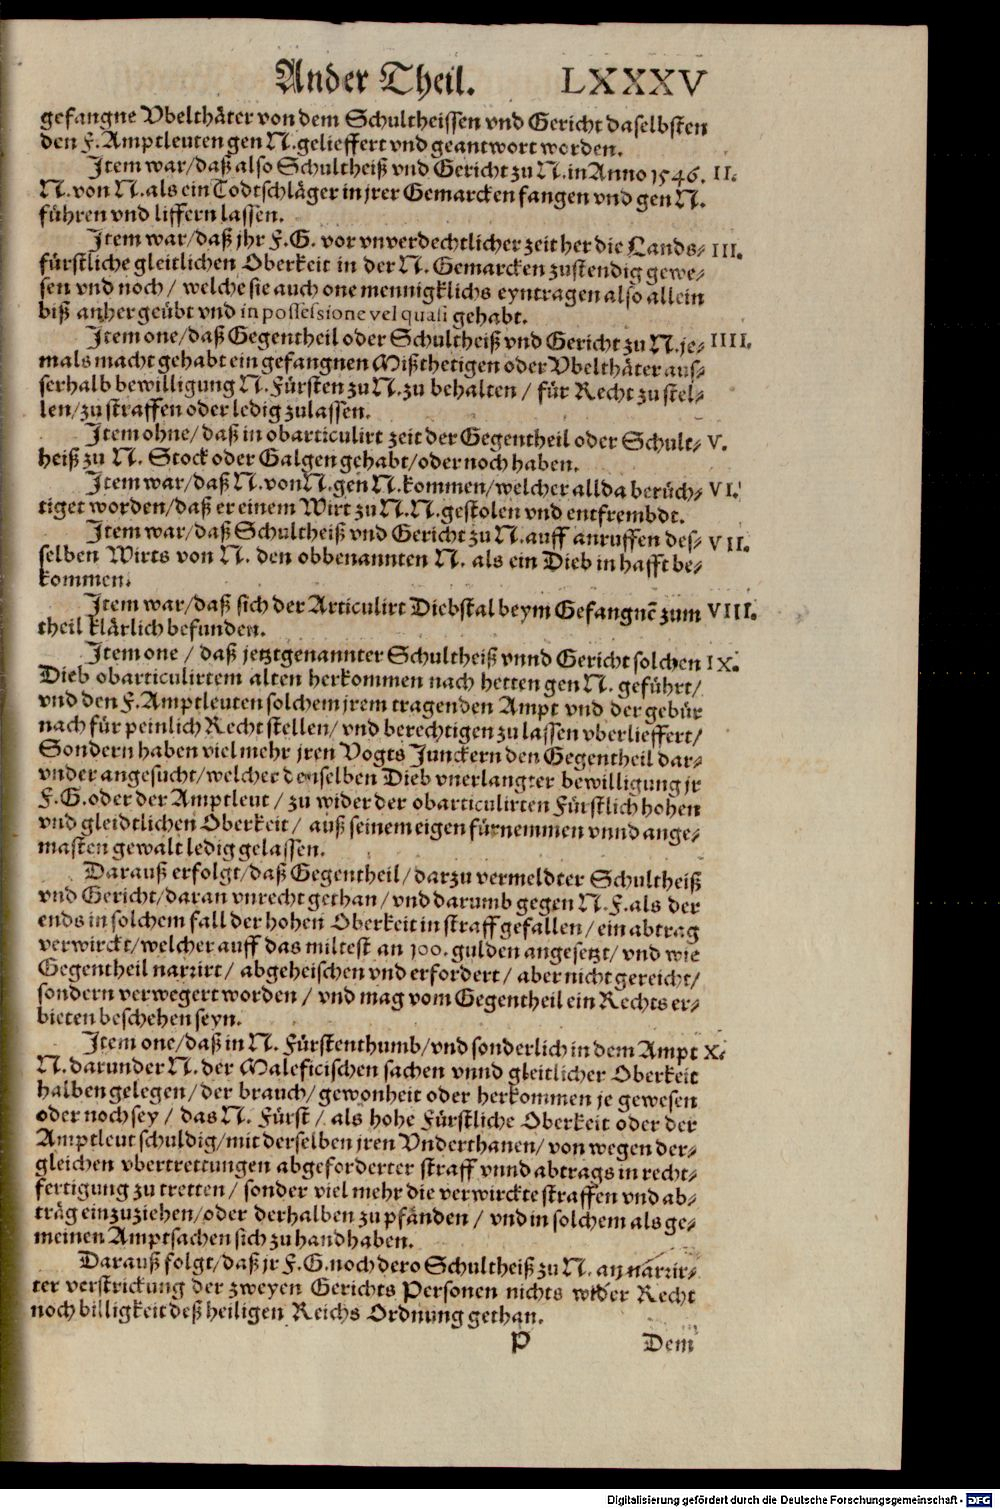 Ander Theil. LXXXV
gefangne Vbelthäter von dem Schultheissen vnd Gericht daselbsten
den F. Amptleuten gen N. gelieffert vnd geantwort worden.
Item war/daß also Schultheiß vnd Gericht zu N. in Anno 1546. II.
N. von N. als ein Todtschläger in jrer Gemarcken fangen vnd gen N.
führen vnd liffern lassen.
Item war/daß jhr F.G. vor vnverdechtlicher zeit her die Lands- III.
fürstliche gleitlichen Oberkeit in der N. Gemarcken zustendig gewe-
sen vnd noch / welche sie auch one mennigklichs eyntragen also allein
biß anher geübt vnd in possessione vel quasi gehabt.
Item one/daß Gegentheil oder Schultheiß vnd Gericht zu N. je- IIII.
mals macht gehabt ein gefangnen Mißthetigen oder Vbelthäter aus-
serhalb bewilligung N. Fürsten zu N. zu behalten / für Recht zu stel-
len/zu straffen oder ledig zulassen.
Item ohne/daß in obarticulirt zeit der Gegentheil oder Schult- V.
heiß zu N. Stock oder Galgen gehabt/oder noch haben.
Item war/daß N. von N. gen N. kommen/welcher allda berüch- VI.
tiget worden/daß er einem Wirt zu N. N. gestolen vnd entfrembdt.
Item war/daß Schultheiß vnd Gericht zu N. auff anruffen des- VII.
selben Wirts von N. den obbenannten N. als ein Dieb in hafft be-
kommen.
Item war/daß sich der Articulirt Diebstal beym Gefangnē zum VIII.
theil klärlich befunden.
Item one / daß jetztgenannter Schultheiß vnnd Gericht solchen IX.
Dieb obarticulirtem alten herkommen nach hetten gen N. geführt/
vnd den F. Amptleuten solchem jrem tragenden Ampt vnd der gebür
nach für peinlich Recht stellen/ vnd berechtigen zu lassen vberlieffert/
Sondern haben viel mehr jren Vogts Junckern den Gegentheil dar-
vnder angesucht/welcher denselben Dieb vnerlangter bewilligung jr
F.G. oder der Amptleut / zu wider der obarticulirten Fürstlich hohen
vnd gleidtlichen Oberkeit / auß seinem eigen fürnemmen vnnd ange-
masten gewalt ledig gelassen.
Darauß erfolgt/daß Gegentheil/darzu vermeldter Schultheiß
vnd Gericht/daran vnrecht gethan / vnd darumb gegen N. F. als der
ends in solchem fall der hohen Oberkeit in straff gefallen / ein abtrag
verwirckt/welcher auff das miltest an 100. gulden angesetzt/ vnd wie
Gegentheil narrirt / abgeheischen vnd erfordert / aber nicht gereicht/
sondern verwegert worden / vnd mag vom Gegentheil ein Rechts er-
bieten beschehen seyn.
Item one/daß in N. Fürstenthumb/vnd sonderlich in dem Ampt X.
N. darunder N. der Maleficischen sachen vnnd gleitlicher Oberkeit
halben gelegen / der brauch/ gewonheit oder herkommen je gewesen
oder noch sey / das N. Fürst / als hohe Fürstliche Oberkeit oder der
Amptleut schuldig/mit derselben jren Vnderthanen/ von wegen der-
gleichen vbertrettungen abgeforderter straff vnnd abtrags in recht-
fertigung zu tretten / sonder viel mehr die verwirckte straffen vnd ab-
träg einzuziehen/oder derhalben zu pfänden / vnd in solchem als ge-
meinen Amptsachen sich zu handhaben.
Darauß folgt/daß jr F.G. noch dero Schultheiß zu N. an narrir-
ter verstrickung der zweyen Gerichts Personen nichts wider Recht
noch billigkeit deß heiligen Reichs Ordnung gethan.
P Dem
Digitalisierung gefördert durch die Deutsche Forschungsgemeinschaft - DFG